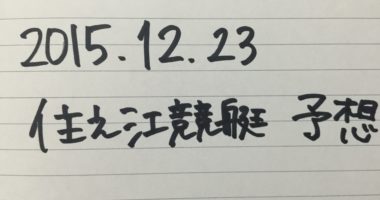 2015.12.23
住之江競艇 予想